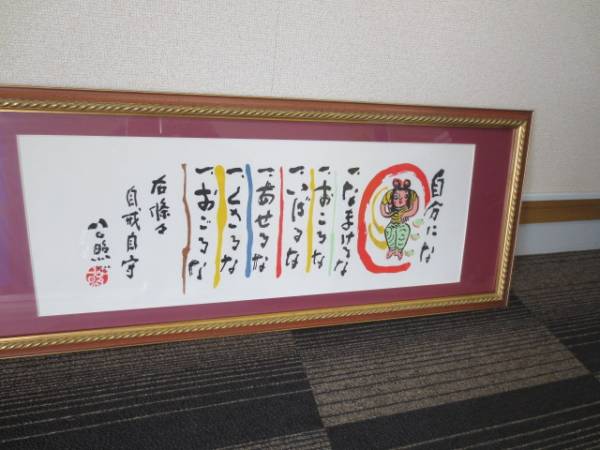 自分にな
一、なまけるな
一、おこるな
一、いばるな
一、あせるな
一、くさるな
一、おごるな
右條々
自戒自守
公照